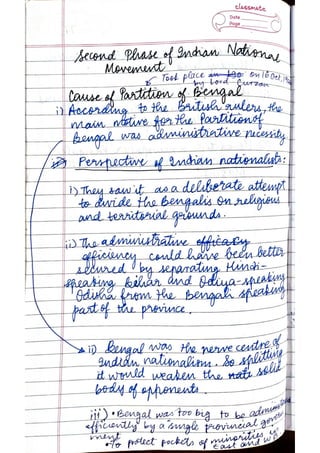 classmate
Date
Page
Second Phase of Indian National
Movement
Took place on 16 Oct, 
by Lord Curzon
Cause of Partition of Bengal
i) According to the British rulers, the
main motive for the Partition of
Bengal was administrative necessity
Perspective of Indian nationalists:
i) They saw it as a deliberate attempt
to divide the Bengalis on religious
and territorial grounds.
ii) The administrative efficacy
efficiency could have been better
secured by separating Hindi-
speaking Bihar and Odiya-speaking
Odisha from the Bengali speaking
part of the province.
ii) Bengal was the nerve centre of
Indian nationalism. So splitting
it would weaken the solid
body of opponents.
iii) • Bengal was too big to be
efficiently by a single provincial govern
ment
• To protect pockets of minorities in
east and w